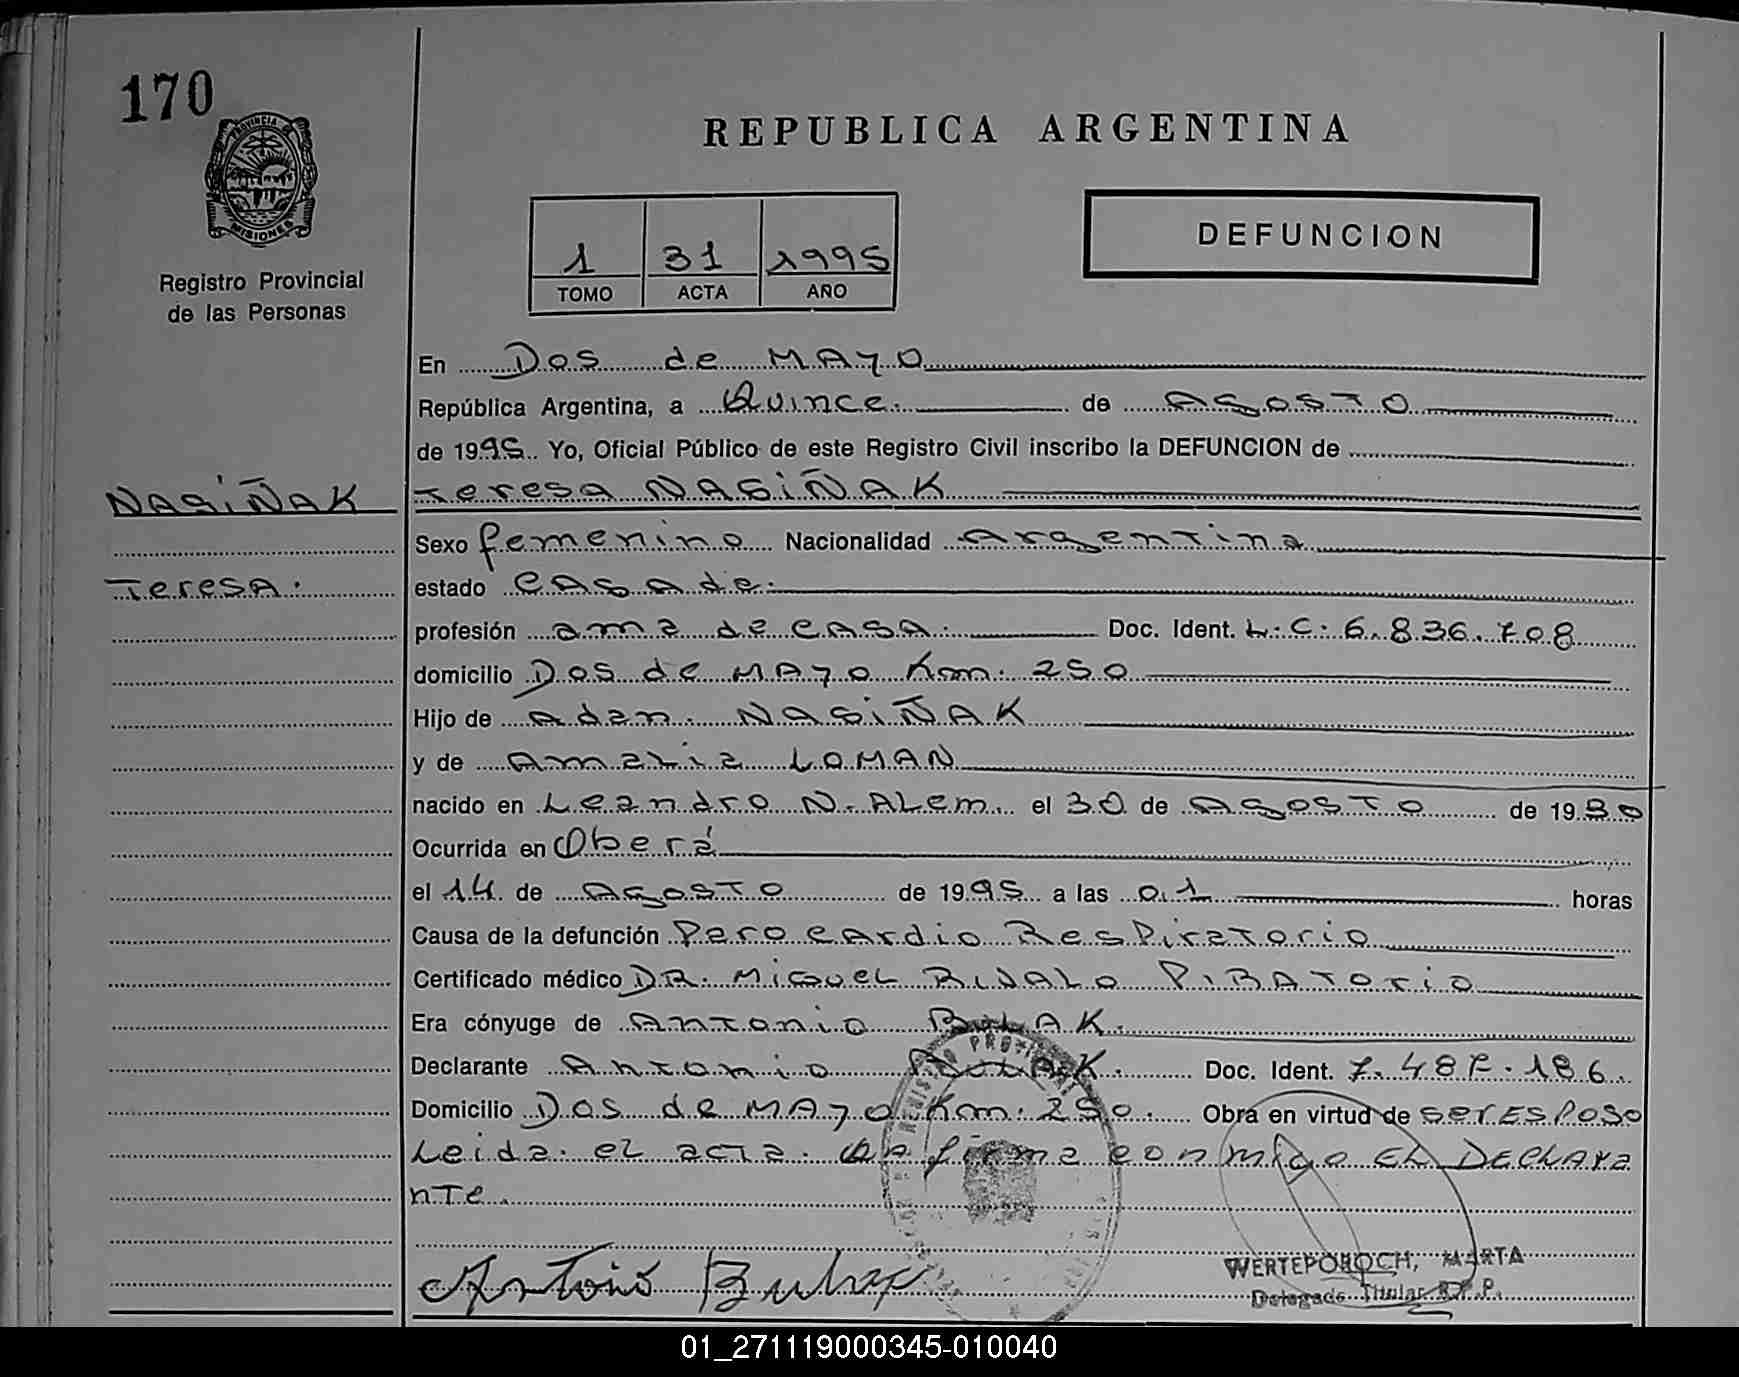 170
PROVINCIA DE
MISIONES
Registro Provincial
de las Personas
REPUBLICA ARGENTINA
1 31 1995
TOMO ACTA AÑO
DEFUNCION
En Dos de MAyo
República Argentina, a Quince. de AGOSTO
de 1995. Yo, Oficial Público de este Registro Civil inscribo la DEFUNCION de
NASIÑAK Teresa NASIÑAK
Sexo femenino Nacionalidad Argentina
Teresa.
estado CASADA.
profesión ama de CASA. Doc. Ident. L.C. 6.836.708
domicilio Dos de MAyo Km. 250
Hijo de Adan. NASIÑAK
y de Amalia LOMAN
nacido en Leandro N. ALem. el 30 de AGOSTO de 1930
Ocurrida en Oberá
el 14 de AGOSTO de 1995 a las 01 horas
Causa de la defunción Paro CArdio ResPiratorio
Certificado médico DR. MiGueL
Era cónyuge de Antonio BULAK.
Declarante Antonio BULAK. Doc. Ident. 7.487.186
Domicilio Dos de MAyo Km. 250. Obra en virtud de ser ESPOSO
Leida. eL acta. La firma conmigo EL DECLARA
nTe.
Antonio Bulak
WERTEPOROCH, MARTA
Delegada Titular R.P.P.
01_271119000345-010040